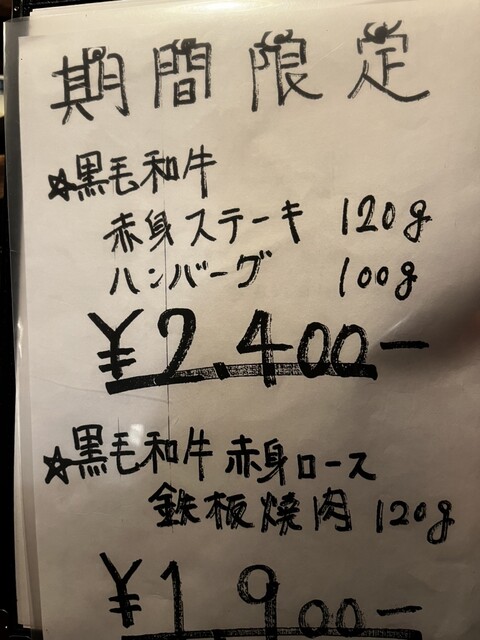 期間限定
☆黒毛和牛
赤身ステーキ 120g
ハンバーグ 100g
¥2,400-
☆黒毛和牛 赤身ロース
鉄板焼肉 120g
¥1,900-